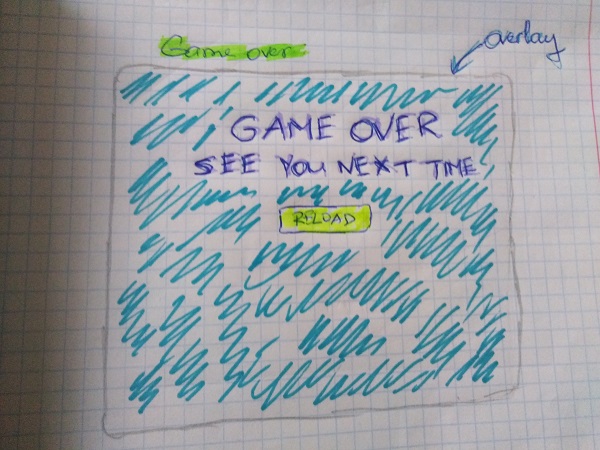 Game over
overlay
GAME OVER
SEE YOU NEXT TIME
RELOAD